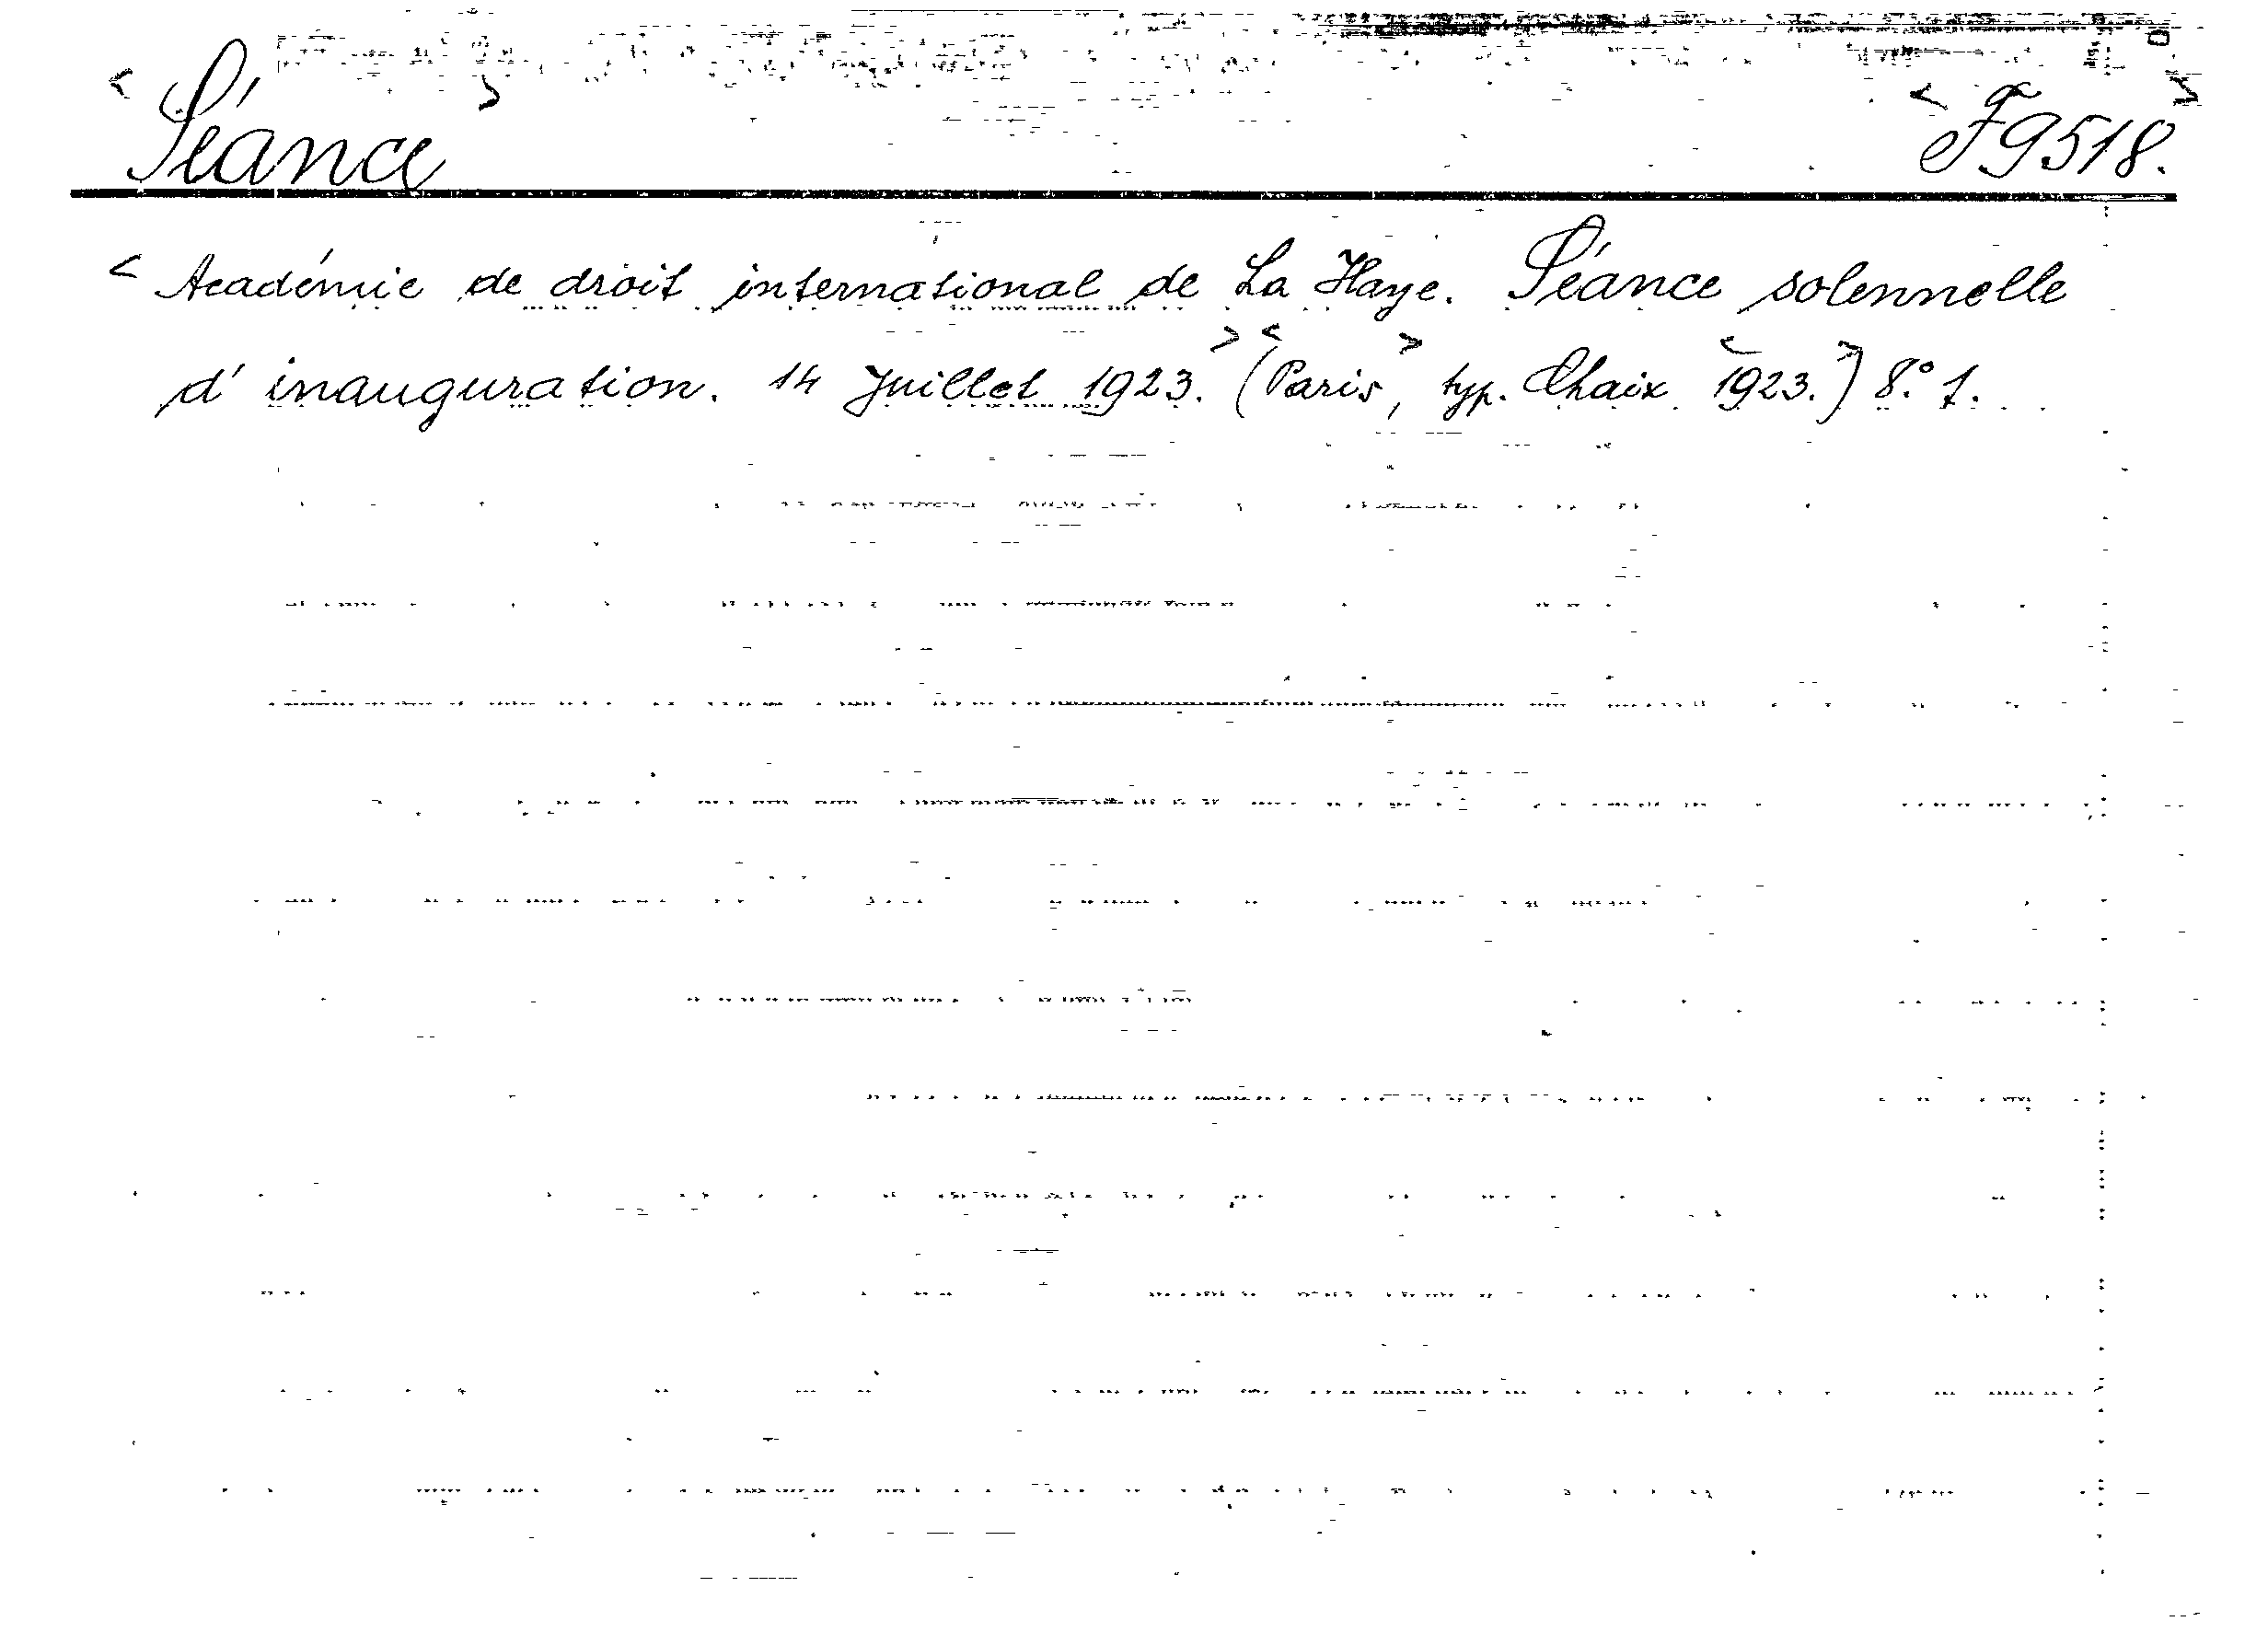 < Séance > < F9518. >
< Académie de droit international de La Haye. Séance solennelle
d'inauguration. 14 Juillet 1923. > < (Paris, > typ. Chaix < 1923.) > 8.° 1.